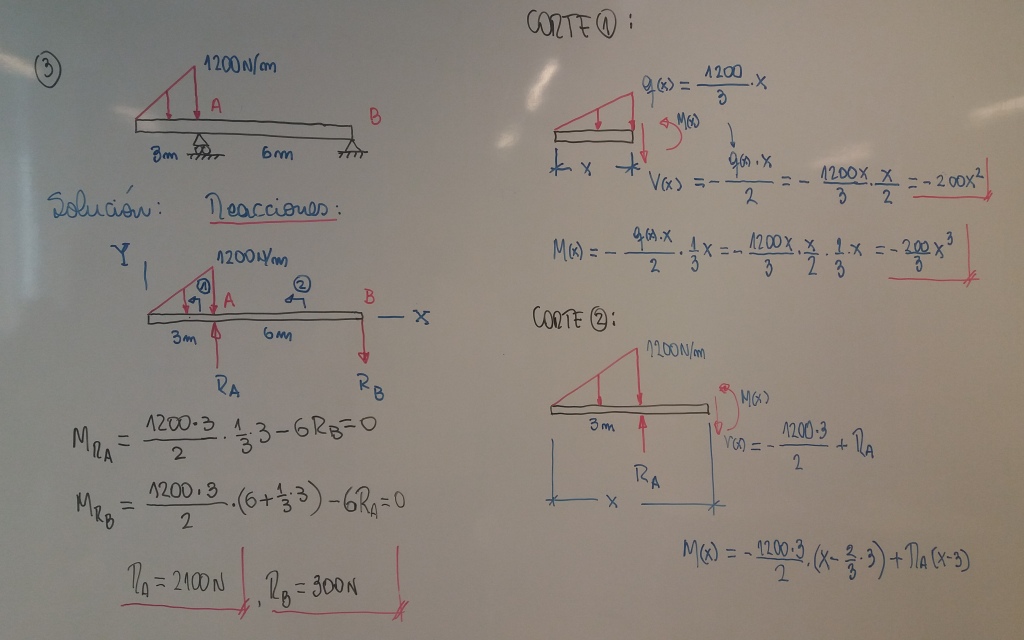 ③
1200N/m
A
B
3m
6m
Solución: Reacciones:
Y
1200N/m
①
②
A
B
X
3m
6m
R_A
R_B
M_{R_A} = \frac{1200·3}{2} · \frac{1}{3}·3 - 6R_B = 0
M_{R_B} = \frac{1200·3}{2} · (6 + \frac{1}{3}·3) - 6R_A = 0
R_A = 2100N, R_B = 300N
CORTE ①:
q(x) = \frac{1200}{3} · x
M(x)
x
V(x) = - \frac{q(x)·x}{2} = - \frac{1200x}{3} · \frac{x}{2} = -200x²
M(x) = - \frac{q(x)·x}{2} · \frac{1}{3}x = - \frac{1200x}{3} · \frac{x}{2} · \frac{1}{3}·x = - \frac{200}{3}x³
CORTE ②:
1200N/m
3m
M(x)
R_A
V(x) = - \frac{1200·3}{2} + R_A
x
M(x) = - \frac{1200·3}{2} · (x - \frac{2}{3}·3) + R_A(x-3)